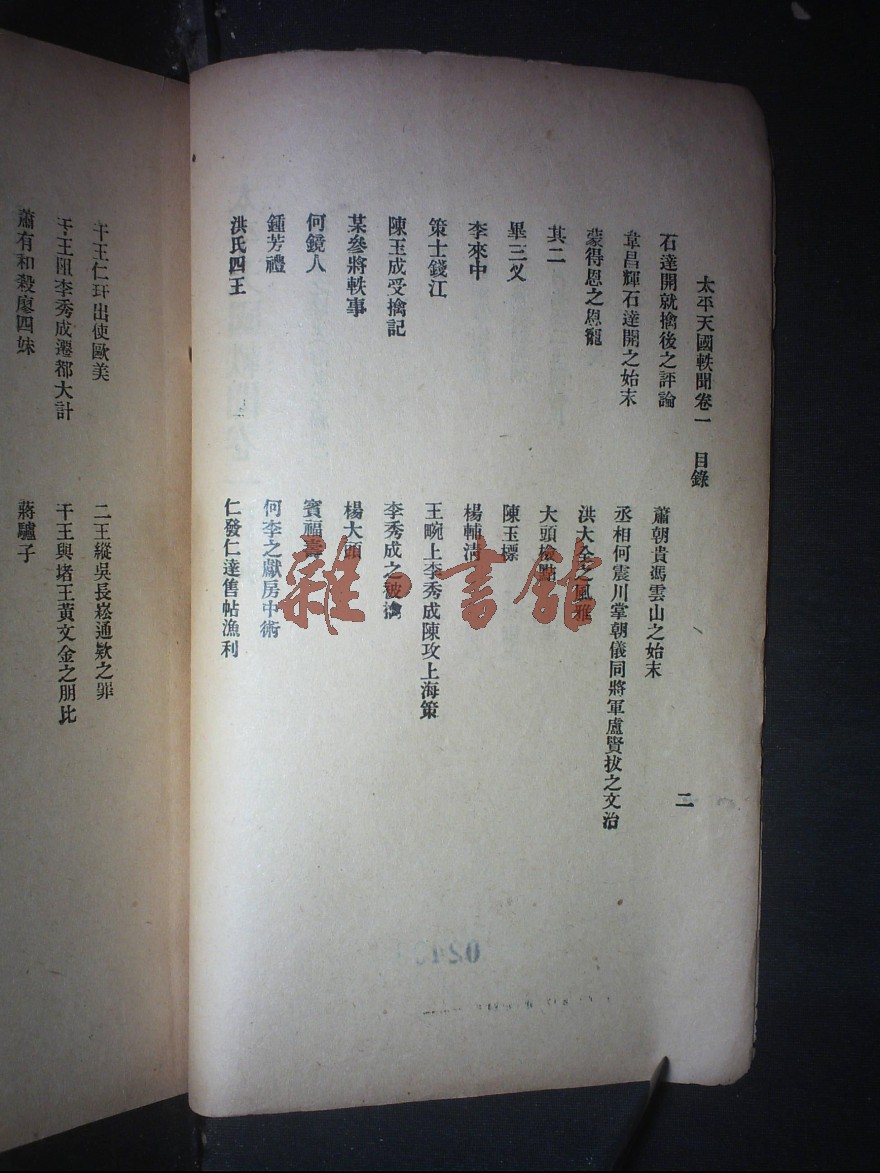 太平天國軼聞卷一　目錄
二
石達開就擒後之評論
蕭朝貴馮雲山之始末
韋昌輝石達開之始末
丞相何震川掌朝儀同將軍盧賢拔之文治
蒙得恩之恩寵
洪大全之風雅
其二
大頭檢點
畢三叉
陳玉標
李來中
楊輔清
策士錢江
王畹上李秀成陳攻上海策
陳玉成受擒記
李秀成之被擒
某參將軼事
楊大頭
何鏡人
賓福壽
鍾芳禮
何李之獻房中術
洪氏四王
仁發仁達售帖漁利
干王仁玕出使歐美
二王縱吳長崧通欵之罪
干王阻李秀成遷都大計
干王與堵王黃文金之朋比
蕭有和殺廖四妹
蔣驢子
雜·書館